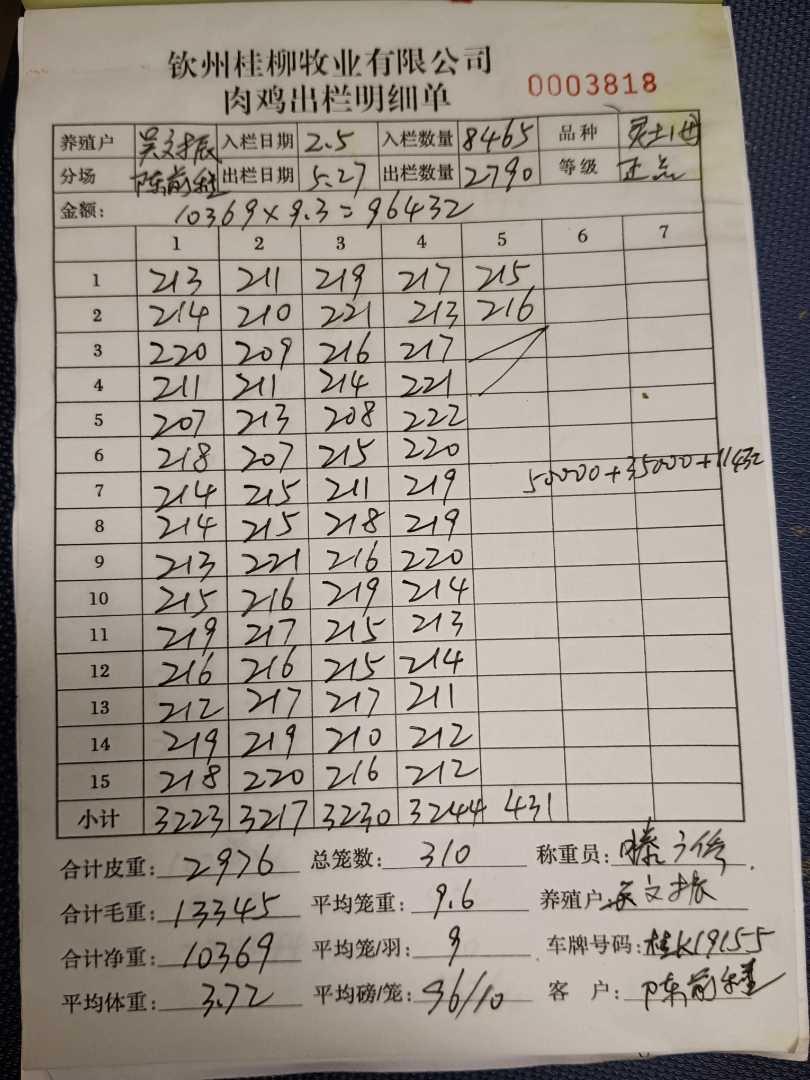 钦州桂柳牧业有限公司
肉鸡出栏明细单 0003818
养殖户 吴文振 入栏日期 2.5 入栏数量 8465 品种
分场 陈前程 出栏日期 5.27 出栏数量 2790 等级 正品
金额: 10369×9.3=96432
1 2 3 4 5 6 7
1 213 211 219 217 215
2 214 210 221 213 216
3 220 209 216 217
4 211 211 214 221
5 207 213 208 222
6 218 207 215 220
50000+35000+11432
7 214 215 211 219
8 214 215 218 219
9 213 221 216 220
10 215 216 219 214
11 219 217 215 213
12 216 216 215 214
13 212 217 217 211
14 219 219 210 212
15 218 220 216 212
小计 3223 3217 3230 3244 431
合计皮重: 2976 总笼数: 310 称重员:
合计毛重: 13345 平均笼重: 9.6 养殖户 吴文振
合计净重: 10369 平均笼/羽: 9 车牌号码: 桂K19155
平均体重: 3.72 平均磅/笼: 96/10 客 户: 陈前程